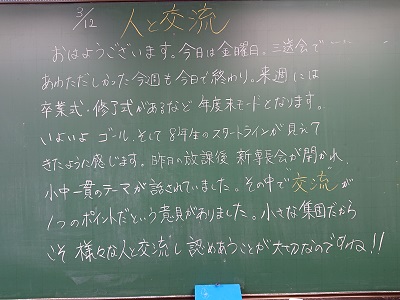 3/12 人と交流
おはようございます。今日は金曜日。三送会で
あわただしかった今週も今日で終わり。来週には
卒業式・修了式があるなど年度末モードとなります。
いよいよゴール、そして8年生のスタートラインが見えて
きたように感じます。昨日の放課後 新専長会が開かれ、
小中一貫のテーマが話されていました。その中で"交流"が
1つのポイントだという意見がありました。小さな集団だから
こそ 様々な人と交流し 認めあうことが大切なのですね!!